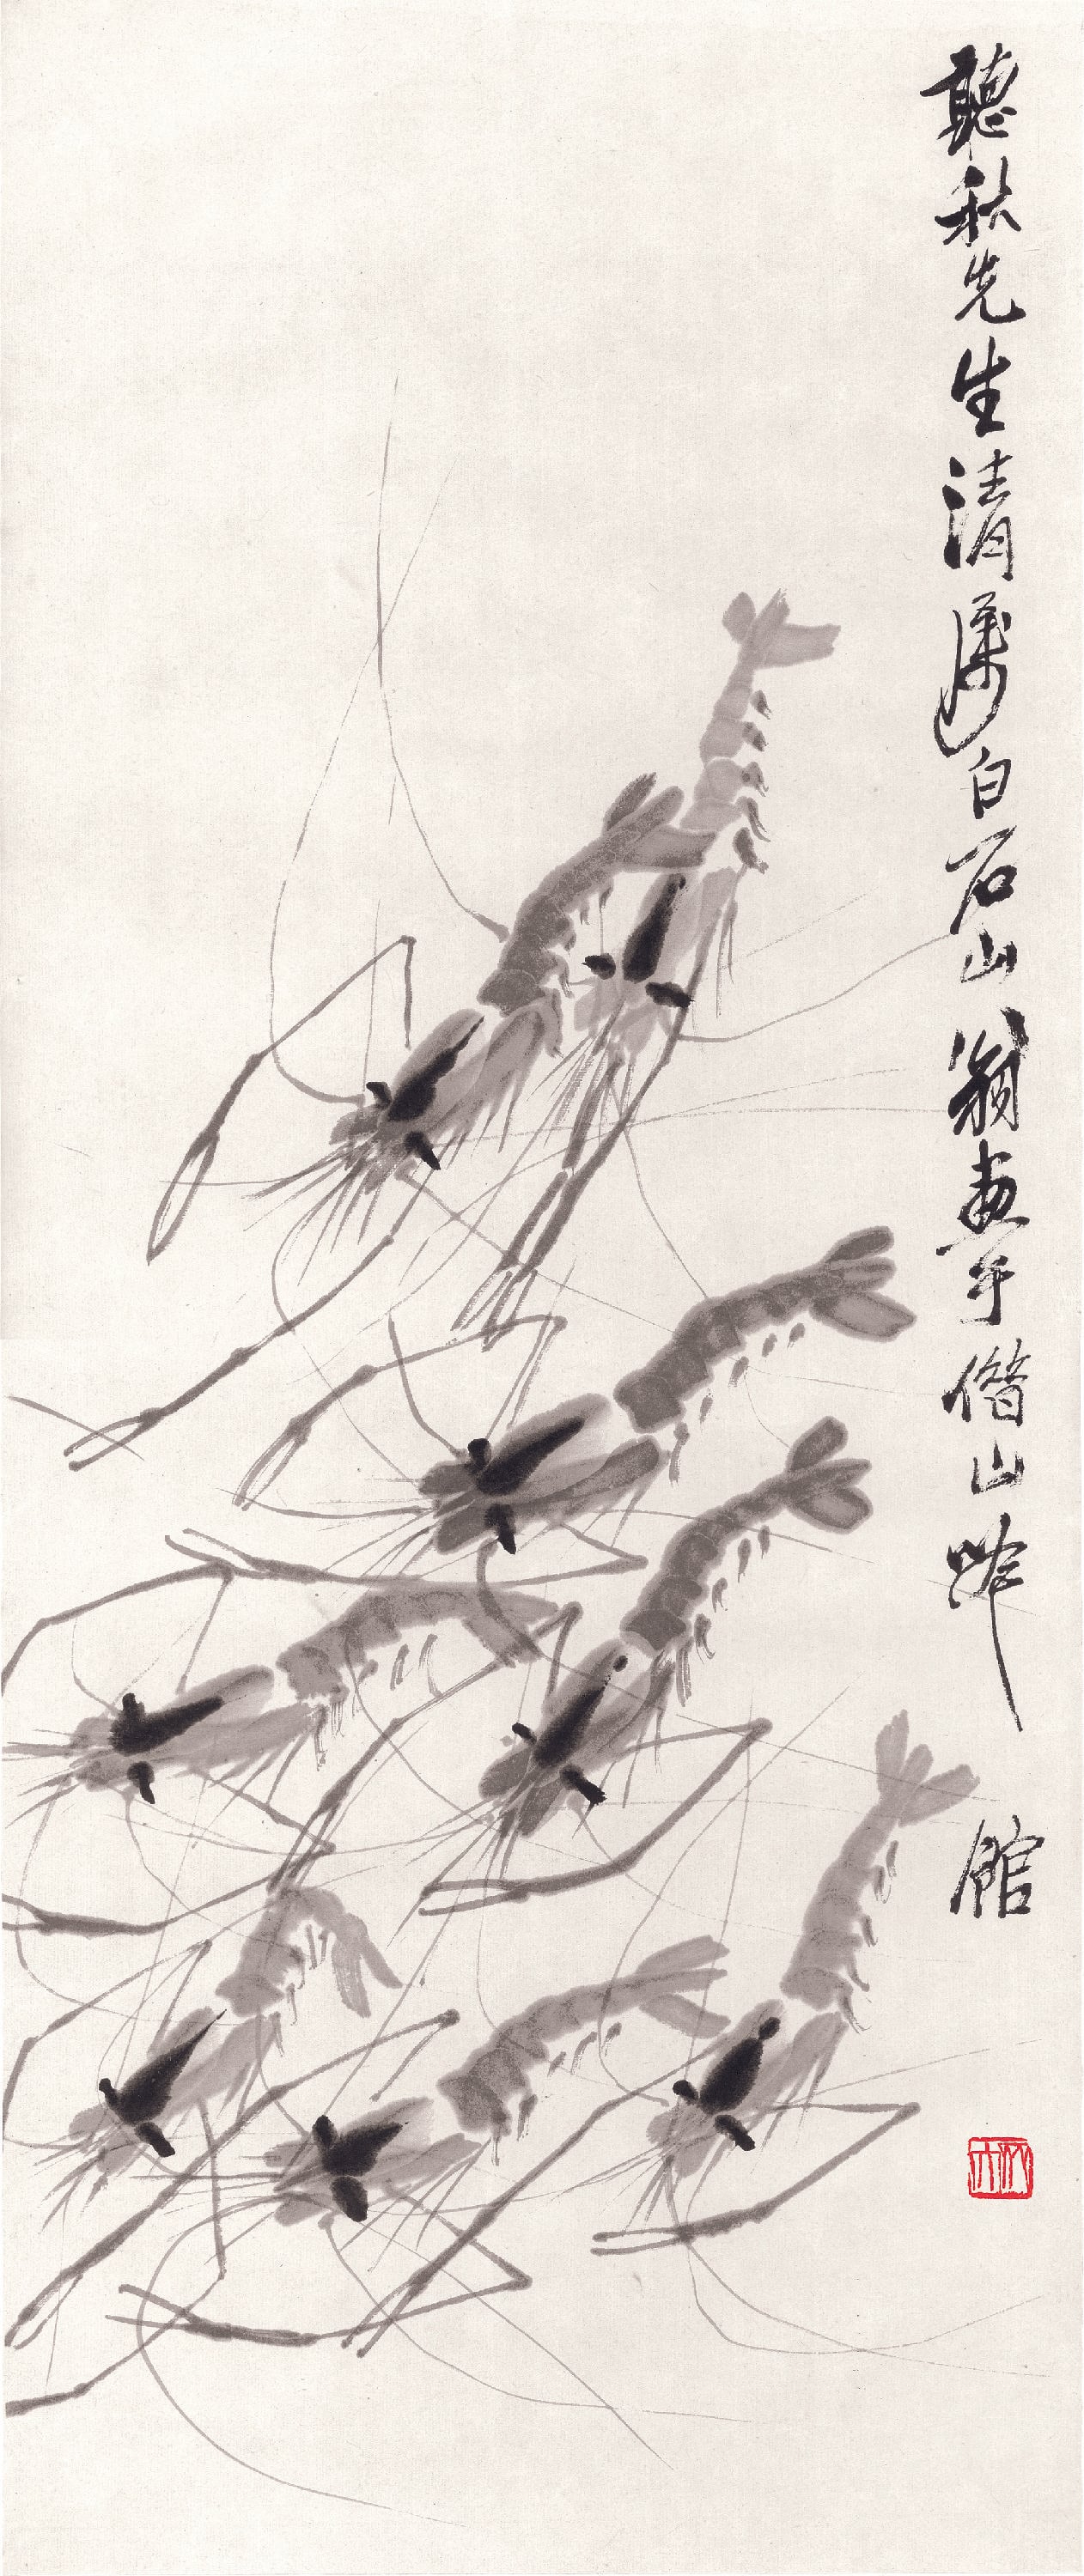 聽秋先生清屬白石山翁畫于借山吟館
木人